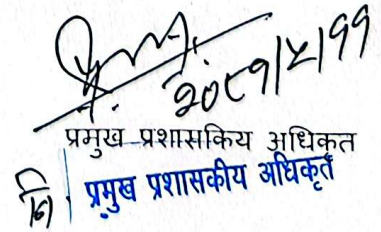 २०८१/५/११
प्रमुख प्रशासकिय अधिकृत
नि. प्रमुख प्रशासकीय अधिकृत